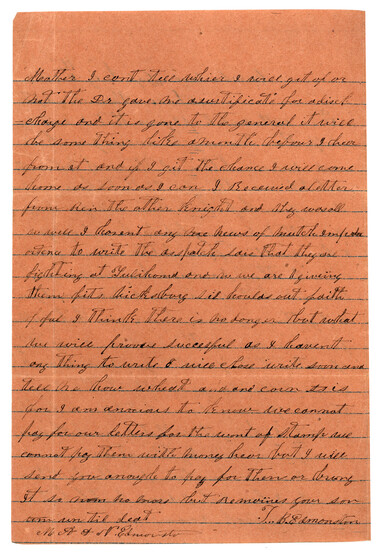 Mother I cant tell whier I will get of or
not the Dr gave me a certificate for a disch
charge and it is gone to the general it will
be some thing like a month before I hear
from it and if I get the chance I will come
home as soon as I can I Received a letter
from the other knight and they wer all
well I havent any war news of mutch
to write the dispatch says that they are
fighting at and we are giveing
them fits vicksburg stil houlds out
I think there is no danger but what
we will prove succesful as I havent
eny thing to write I will close write soon and
tell me how wheat and corn is
for I am anxious to know we cannot
pay for our letters for the want of Stamps we
cannot pay them with money hear but I will
send you anough to pay for them or bring
it so no more but remaines your son
un til deat T. R. Edmonston
M A & N. Edmonston